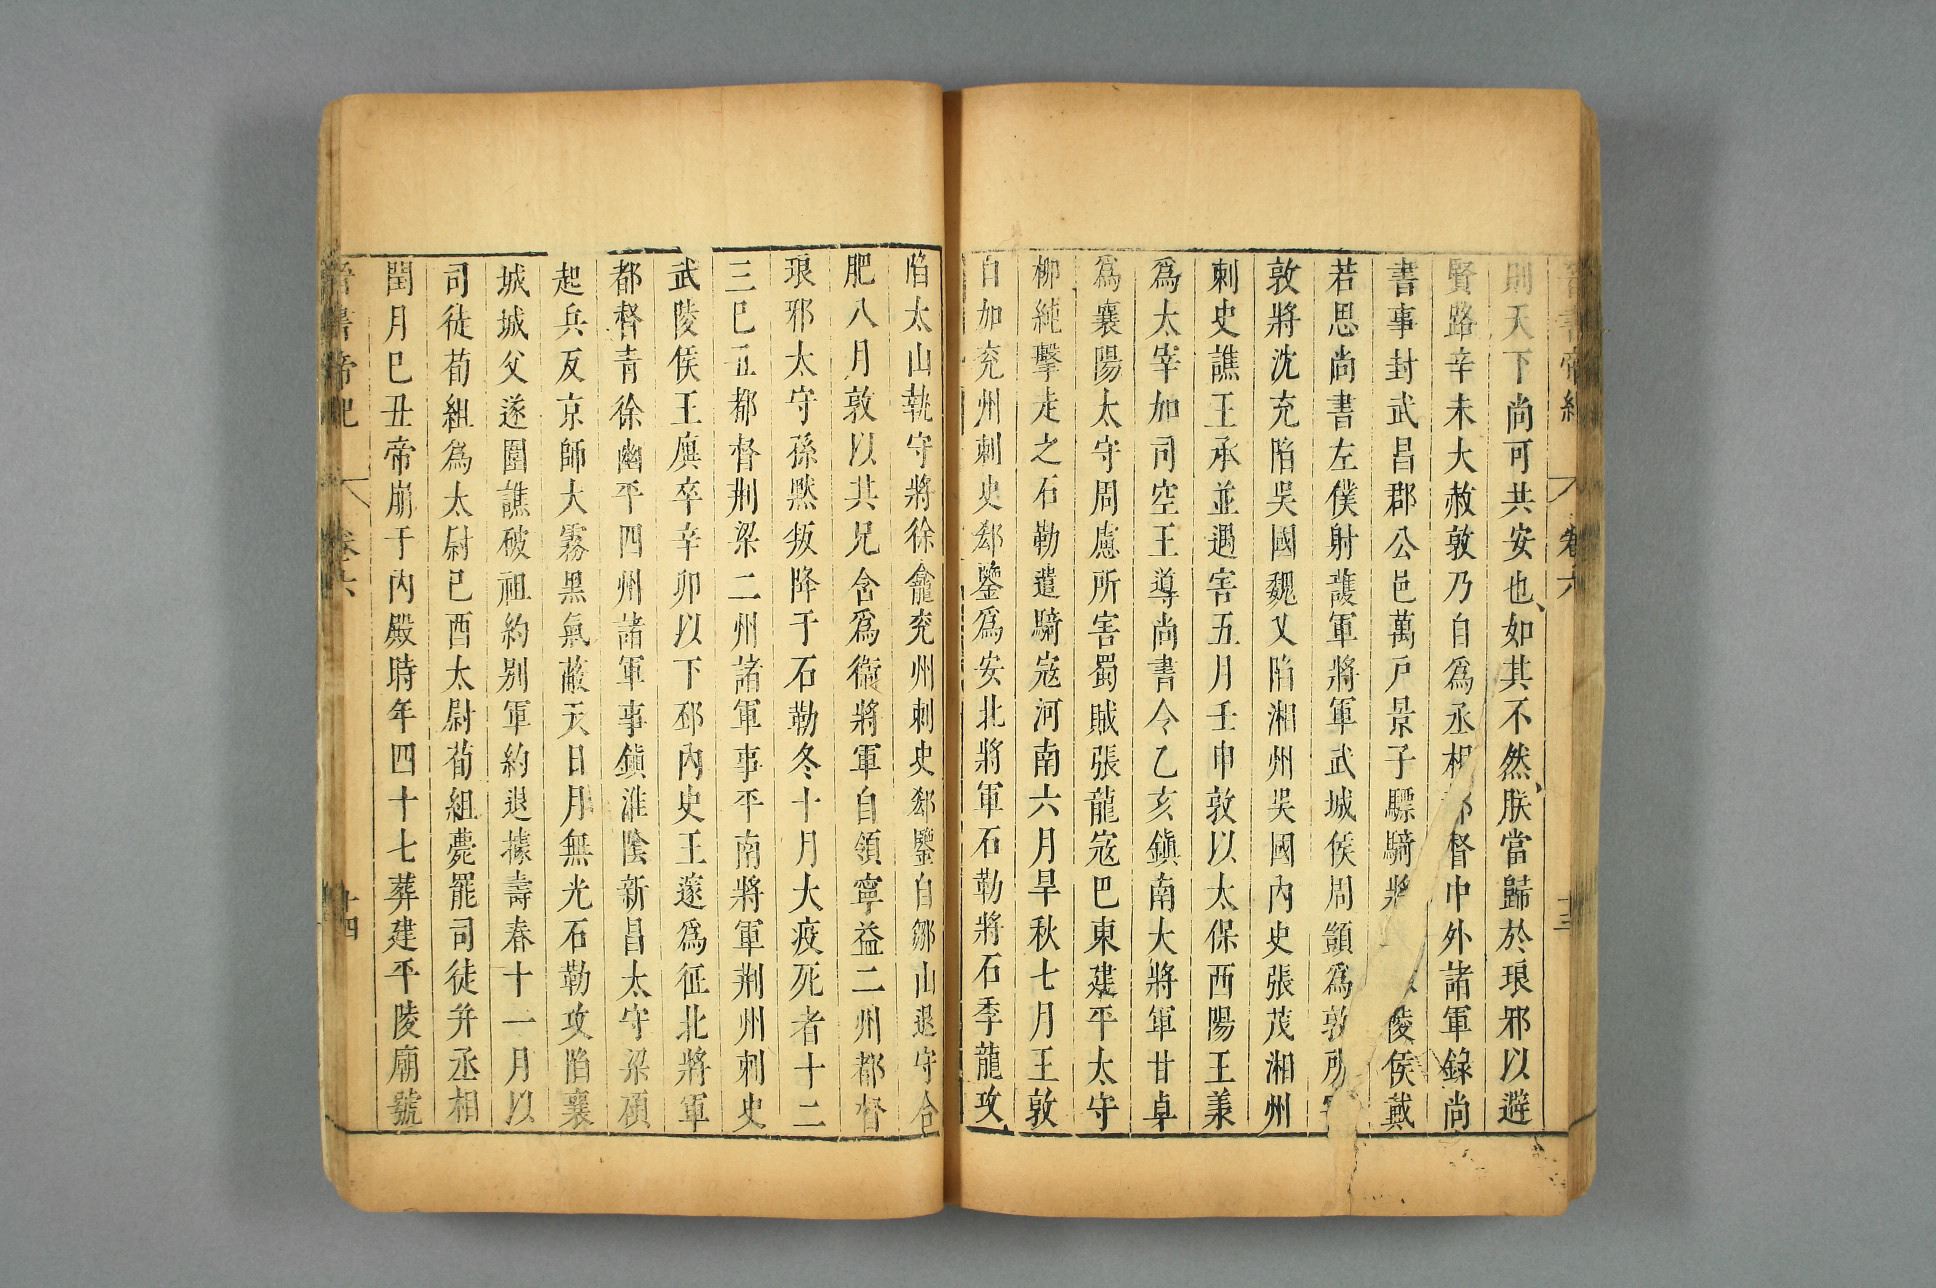 晉書帝紀 卷六 十三
則天下尚可共安也如其不然朕當歸於琅邪以避
賢路辛未大赦敦乃自爲丞相都督中外諸軍錄尚
書事封武昌郡公邑萬戸景子驃騎將 陵侯戴
若思尚書左僕射護軍將軍武城侯周顗爲敦所害
敦將沈充陷吳國魏乂陷湘州吳國內史張茂湘州
刺史譙王承並遇害五月壬申敦以太保西陽王羕
爲太宰加司空王導尚書令乙亥鎮南大將軍甘卓
爲襄陽太守周慮所害蜀賊張龍寇巴東建平太守
柳純擊走之石勒遣騎寇河南六月旱秋七月王敦
自加兖州刺史郄鑒爲安北將軍石勒將石季龍攻
陷太山執守將徐龕兖州刺史郄鑒自鄒山退守合
肥八月敦以其兄含爲衛將軍自領寧益二州都督
琅邪太守孫黙叛降于石勒冬十月大疫死者十二
三巳丑都督荆梁二州諸軍事平南將軍荆州刺史
武陵侯王廙卒辛卯以下邳內史王邃爲征北將軍
都督青徐幽平四州諸軍事鎮淮陰新昌太守梁碩
起兵反京師大霧黑氣蔽天日月無光石勒攻陷襄
城城父遂圍譙破祖約别軍約退據壽春十一月以
司徒荀組爲太尉巳酉太尉荀組薨罷司徒并丞相
閏月巳丑帝崩于內殿時年四十七葬建平陵廟號
晉書帝紀 卷六 十四